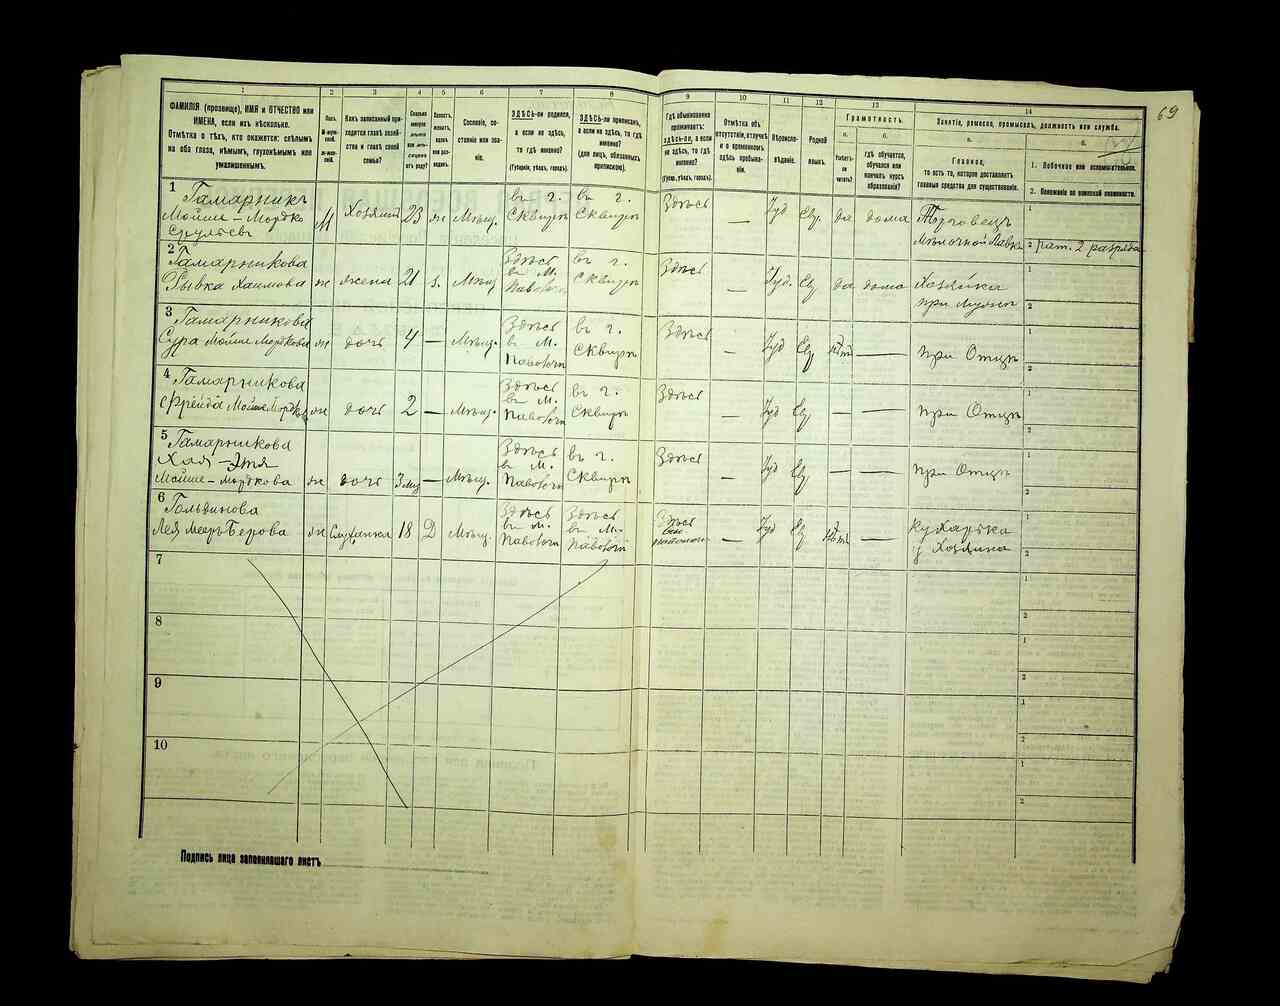 69
1 2 3 4 5 6 7 8 9 10 11 12 13 14
ФАМИЛІЯ (прозвище), ИМЯ и ОТЧЕСТВО или
ИМЕНА, если ихъ нѣсколько.
Отмѣтка о тѣхъ, кто окажется: слѣпымъ
на оба глаза, нѣмымъ, глухонѣмымъ или
умалишеннымъ.
Полъ.
Какъ записанный при-
ходится главѣ хозяй-
ства и главѣ своей
семьи?
Сословіе, со-
стояніе или зва-
ніе.
ЗДѢСЬ-ли родился,
а если не здѣсь,
то гдѣ именно?
(Губернія, уѣздъ, городъ).
ЗДѢСЬ-ли приписанъ,
а если не здѣсь, то гдѣ
именно?
(для лицъ, обязанныхъ
припискою).
Гдѣ обыкновенно
проживаетъ:
здѣсь-ли, а если
не здѣсь, то гдѣ
именно?
(Губер., уѣздъ, городъ).
Отмѣтка объ
отсутствіи, отлучкѣ
и о временномъ
здѣсь пребыва-
ніи.
Вѣроиспо-
вѣданіе.
Родной
языкъ.
Грамотность.
а.
Умѣетъ-
ли
читать?
б.
гдѣ обучается,
обучался или
кончилъ курсъ
образованія?
Занятіе, ремесло, промыселъ, должность или служба.
а.
Главное,
то есть то, которое доставляетъ
главныя средства для существованія.
б.
1. Побочное или вспомогательное.
2. Положеніе по воинской повинности.
1
Гамарникъ
Мойше-Мордко
Срулевъ
М
Хозяинъ
23
ж
Мѣщ.
въ г.
Сквирѣ
въ г.
Сквирѣ
Здѣсь
—
Іуд
Евр.
да
дома
Торговецъ
Мѣлочной Лавкѣ
1
2 рат. 2 разряда
2
Гамарникова
Рывка Хаимова
ж
жена
21
з.
Мѣщ
Здѣсь
въ М.
Паволочи
въ г.
Сквирѣ
Здѣсь
—
Іуд.
Евр
да
дома
Хозяйка
при Мужѣ
1
2
3
Гамарникова
Сура Мойше Мордкова
ж
дочь
4
—
Мѣщ.
Здѣсь
въ М.
Паволочи
въ г.
Сквирѣ
Здѣсь
—
Іуд
Евр
нѣтъ
—
при Отцѣ
1
2
4
Гамарникова
Фрейда Мойше Мордков
ж
дочь
2
—
Мѣщ.
Здѣсь
въ М.
Паволочи
въ г.
Сквирѣ
Здѣсь
—
Іуд
Евр
—
—
при Отцѣ
1
2
5
Гамарникова
Хая-Этя
Мойше-Мордкова
ж
дочь
3 мѣ
—
Мѣщ.
Здѣсь
въ М.
Паволочи
въ г.
Сквирѣ
Здѣсь
—
Іуд
Евр
—
—
при Отцѣ
1
2
6
Гольдинова
Лея Мееръ Берова
ж
Служанка
18
Д
Мѣщ.
Здѣсь
въ М.
Паволочи
Здѣсь
въ М.
Паволочи
Здѣсь
—
Іуд
Евр
нѣтъ
—
Кухарка
у Хозяина
2
7
1
2
8
1
2
9
1
2
10
1
2
Подпись лица заполнявшаго листъ